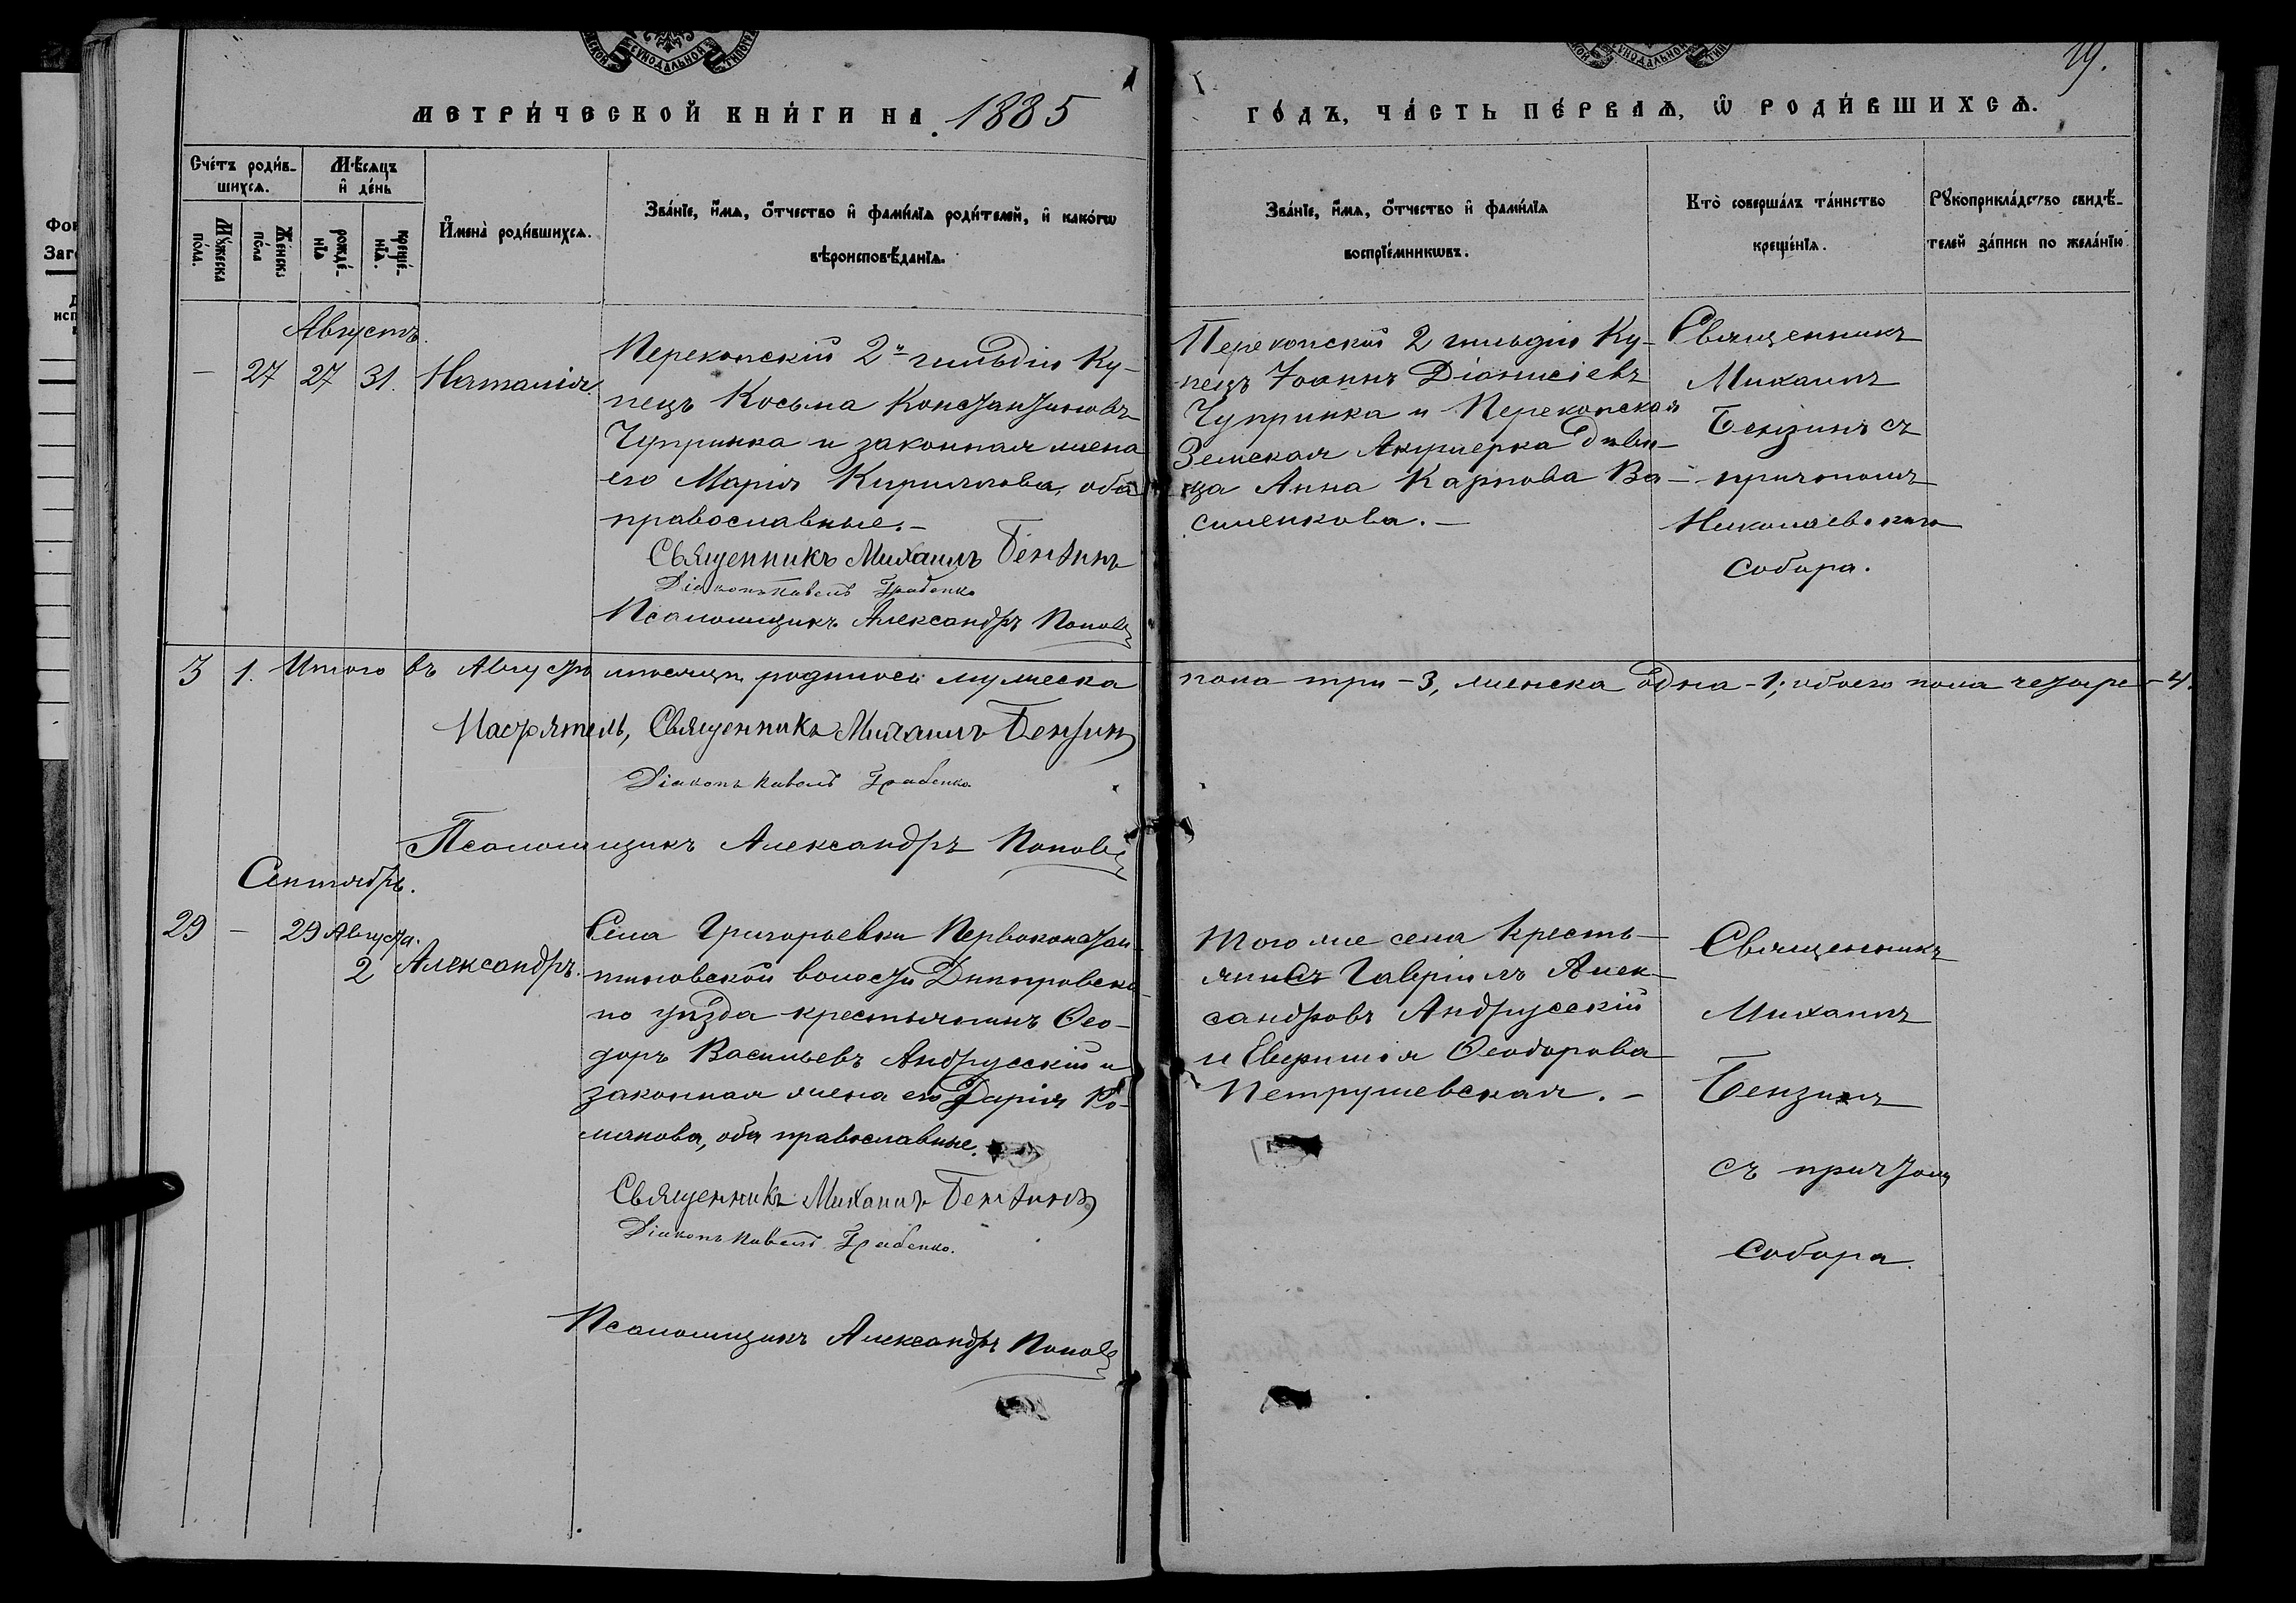 МЕТРИ́ЧЕСКОЙ КНИ́ГИ НА 1885
ГО́ДЪ, ЧА́СТЬ ПЕ́РВАѦ, Ѡ҆ РОДИ́ВШИХСѦ.
19.
Сче́тъ роди́в-
шихсѧ.
Мѣ́сѧцъ
и҆ де́нь
Мꙋ́жеска
по́ла.
Же́нска
по́ла
рожде́-
нїѧ
креще́-
нїѧ.
И҆мена̀ роди́вшихсѧ.
Зва́нїе, и҆́мѧ, ѻ҆́тчество и҆ фами́лїѧ роди́телей, и҆ како́гѡ
вѣроисповѣ́данїѧ.
Зва́нїе, и҆́мѧ, ѻ҆́тчество и҆ фами́лїѧ
воспрїе́мникѡвъ.
Кто̀ соверша́лъ та́инство
креще́нїѧ.
Рꙋкоприкла́дство свидѣ́-
телей за́писи по жела́нїю
Августъ.
— 27 27 31. Наталія.
Перекопскій 2й гильдіи Ку-
пецъ Косьма Константиновъ
Чупринка и законная жена
его Марія Кириллова, оба
православные. —
Священникъ Михаилъ Бензинъ
Діаконъ Павелъ Грабенко
Псаломщикъ Александръ Поповъ
Перекопскій 2 гильдіи Ку-
пецъ Іоаннъ Діонисіевъ
Чупринка и Перекопская
Земская Акушерка дѣви-
ца Анна Карпова Ва-
силенкова. —
Священникъ
Михаилъ
Бензинъ съ
причтомъ
Николаевскаго
Собора.
3 1. Итого въ Августѣ мѣсяцѣ родилось мужеска
пола три - 3, женска одна - 1; обоего пола четыре - 4.
Настоятель, Священникъ Михаилъ Бензинъ
Діаконъ Павелъ Грабенко.
Псаломщикъ Александръ Поповъ
Сентябрь.
29 — 29 Августа.
2 Александръ.
Села Григорьевки Первоконстан-
тиновской волости Днѣпровска-
го уѣзда крестьянинъ Ѳео-
доръ Васильевъ Андрусскій и
законная жена его Дарія Ро-
манова, оба православные.
Священникъ Михаилъ Бензинъ
Діаконъ Павелъ Грабенко.
Псаломщикъ Александръ Поповъ
Того же села Кресть-
янинъ Гавріилъ Алек-
сандровъ Андрусскій
и Евфимія Ѳеодорова
Петрушевская. —
Священникъ
Михаилъ
Бензинъ
съ причтомъ
Собора.